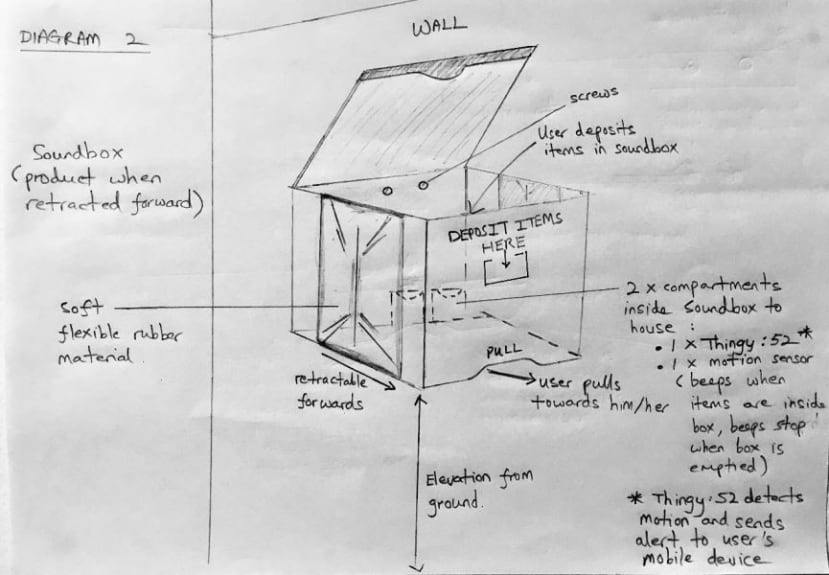 DIAGRAM 2
WALL
Soundbox
(product when
retracted forward)
screws
User deposits
items in soundbox
DEPOSIT ITEMS
HERE
soft
flexible rubber
material.
retractable
forwards
PULL
user pulls
towards him/her
Elevation from
ground.
2 x compartments
inside Soundbox to
house :
• 1 x Thingy:52*
• 1 x motion sensor
(beeps when
items are inside
box, beeps stop
when box is
emptied)
* Thingy:52 detects
motion and sends
alert to user's
mobile device